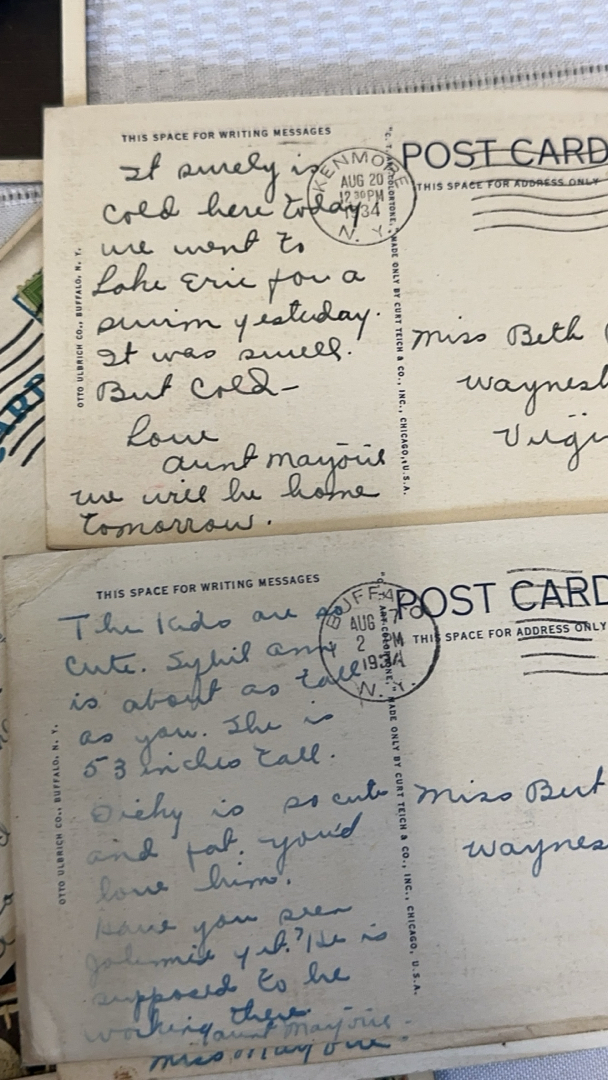 THIS SPACE FOR WRITING MESSAGES
It surely is
cold here today
we went to
Lake Erie for a
swim yesterday.
It was swell.
But Cold—
Love
aunt Marjorie
we will be home
tomorrow.
OTTO ULBRICH CO., BUFFALO, N. Y.
KENMORE
AUG 20
12 30 PM
1934
N. Y.
"C. T. ART-COLORTONE," MADE ONLY BY CURT TEICH & CO., INC., CHICAGO, U.S.A.
POST CARD
THIS SPACE FOR ADDRESS ONLY
Miss Beth
Waynesb
Virgin
THIS SPACE FOR WRITING MESSAGES
The Kids are so
cute. Sybil Ann
is about as tall
as you. She is
53 inches tall.
Dicky is so cute
and fat. you'd
love him.
Have you seen
Johnnie yet? He is
supposed to be
working there
aunt Marjorie.
OTTO ULBRICH CO., BUFFALO, N. Y.
BUFFALO
AUG 7
2 PM
1934
N. Y.
"C. T. ART-COLORTONE," MADE ONLY BY CURT TEICH & CO., INC., CHICAGO, U.S.A.
POST CARD
THIS SPACE FOR ADDRESS ONLY
Miss
Waynes